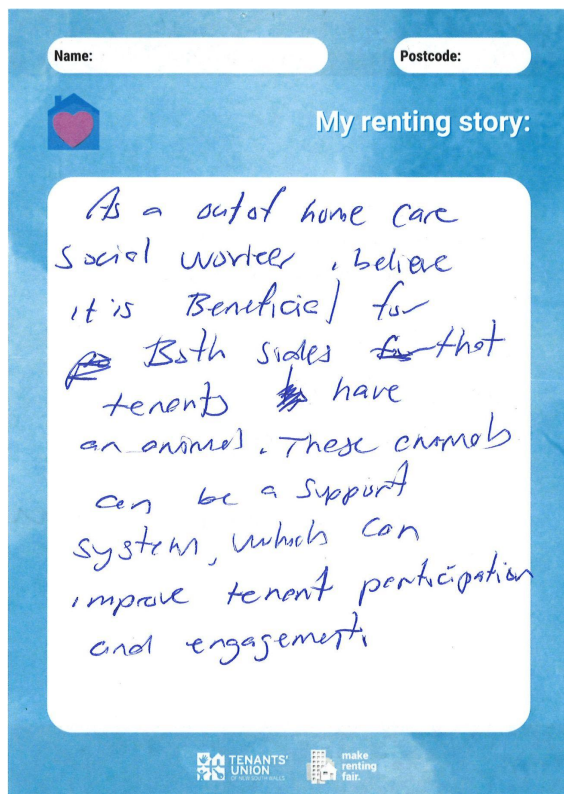 Name:
Postcode:
My renting story:
As a out of home care
social worker, believe
it is Beneficial for
Both sides that
tenants have
an animal. These animals
can be a support
system, which can
improve tenant participation
and engagement.
TENANTS'
UNION
OF NEW SOUTH WALES
make
renting
fair.